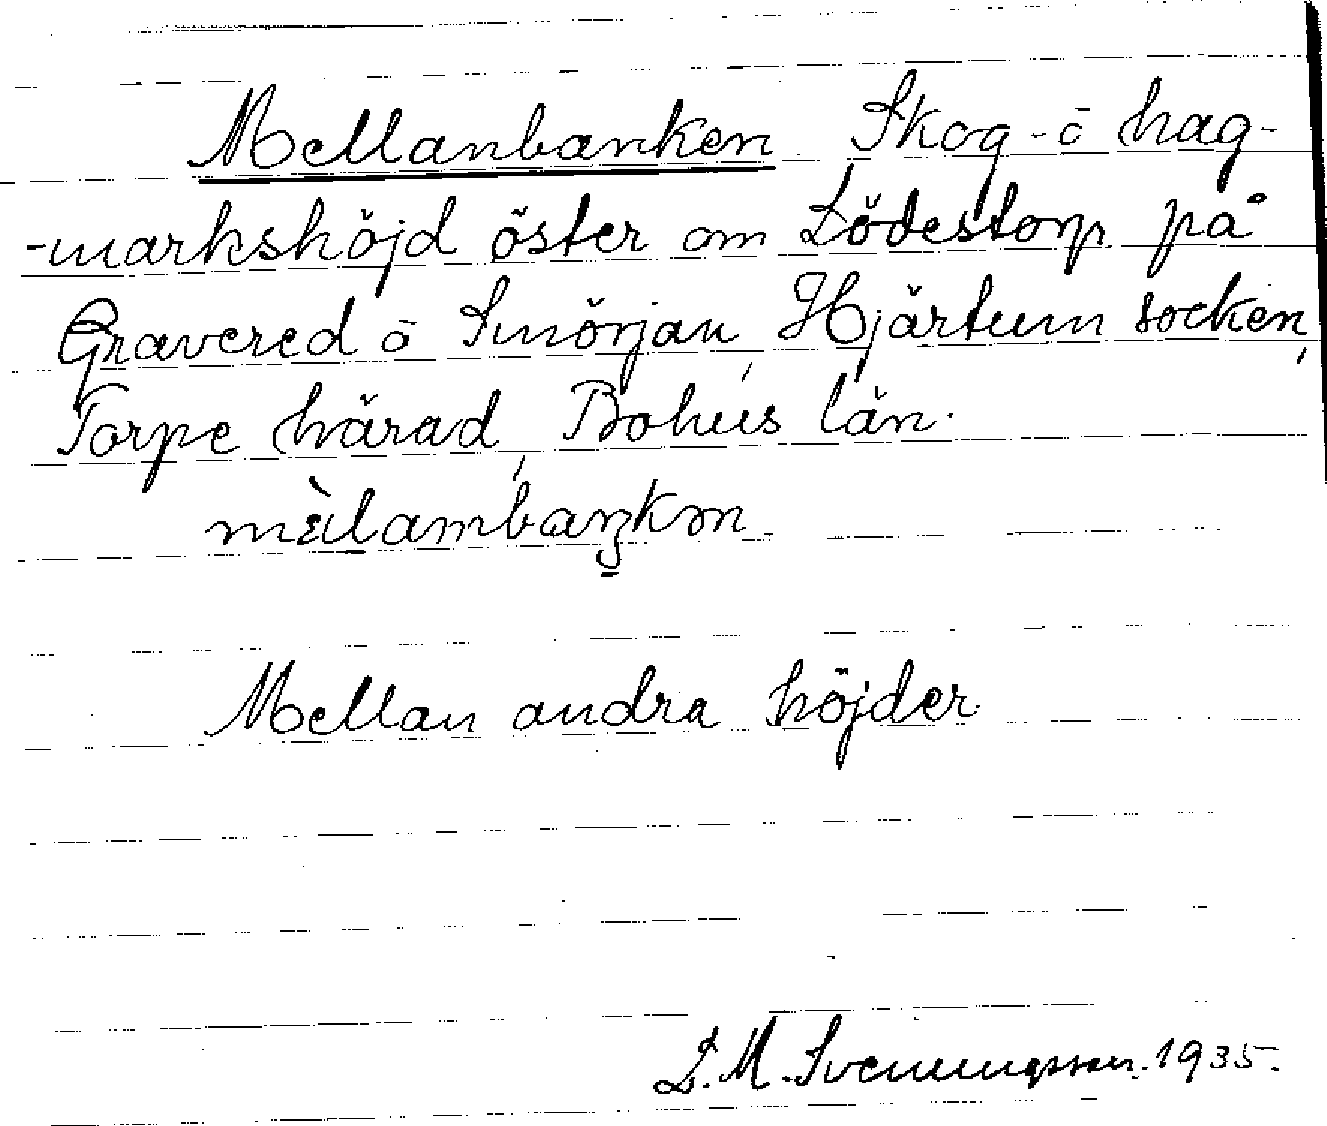 Mellanbanken Skog- o hag-
-markshöjd öster om Lödestorp på
Gravered o Smörjan, Hjärtum socken,
Torpe härad, Bohus län.
mèlambaŋkən
Mellan andra höjder
L. M. Svenungsson. 1935.